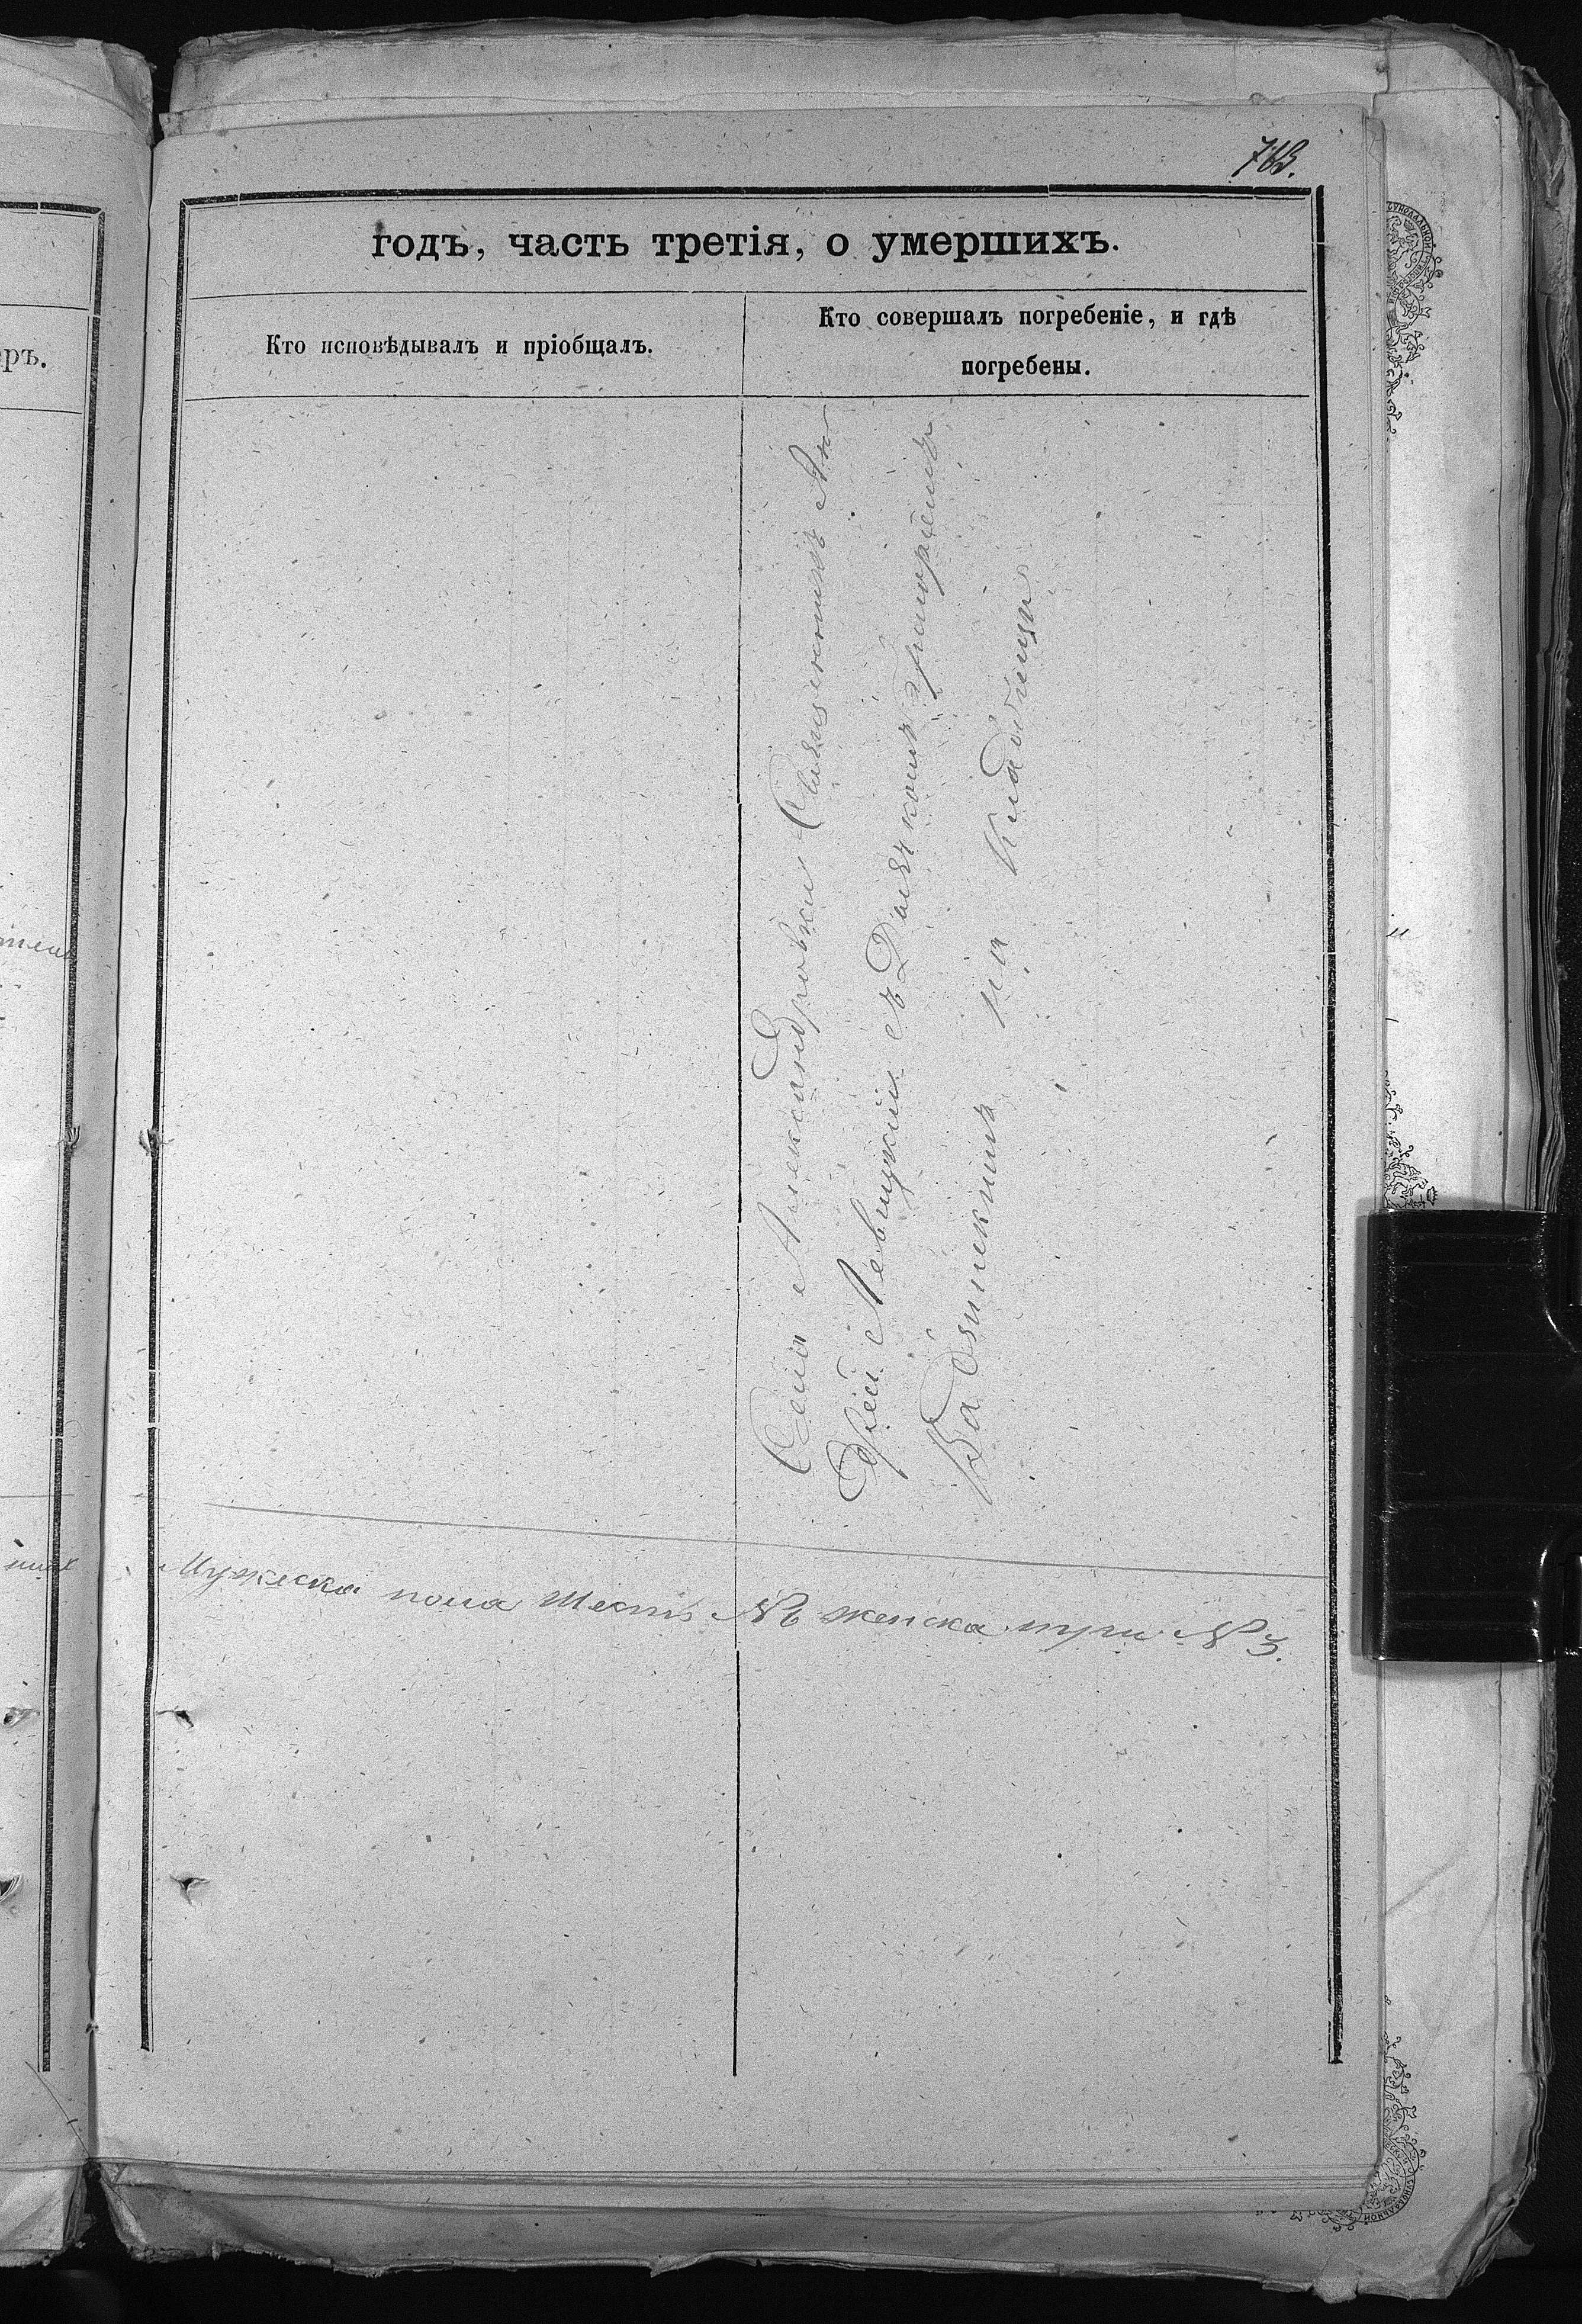 783.
годъ, часть третія, о умершихъ.
Кто исповѣдывалъ и пріобщалъ.
Кто совершалъ погребеніе, и гдѣ
погребены.
Села Александровки Священникъ Ан
дрей Левицкій съ Дьячкомъ Григоріемъ
на Кладбищи
Мужеска пола шесть № 6 женска три № 3.